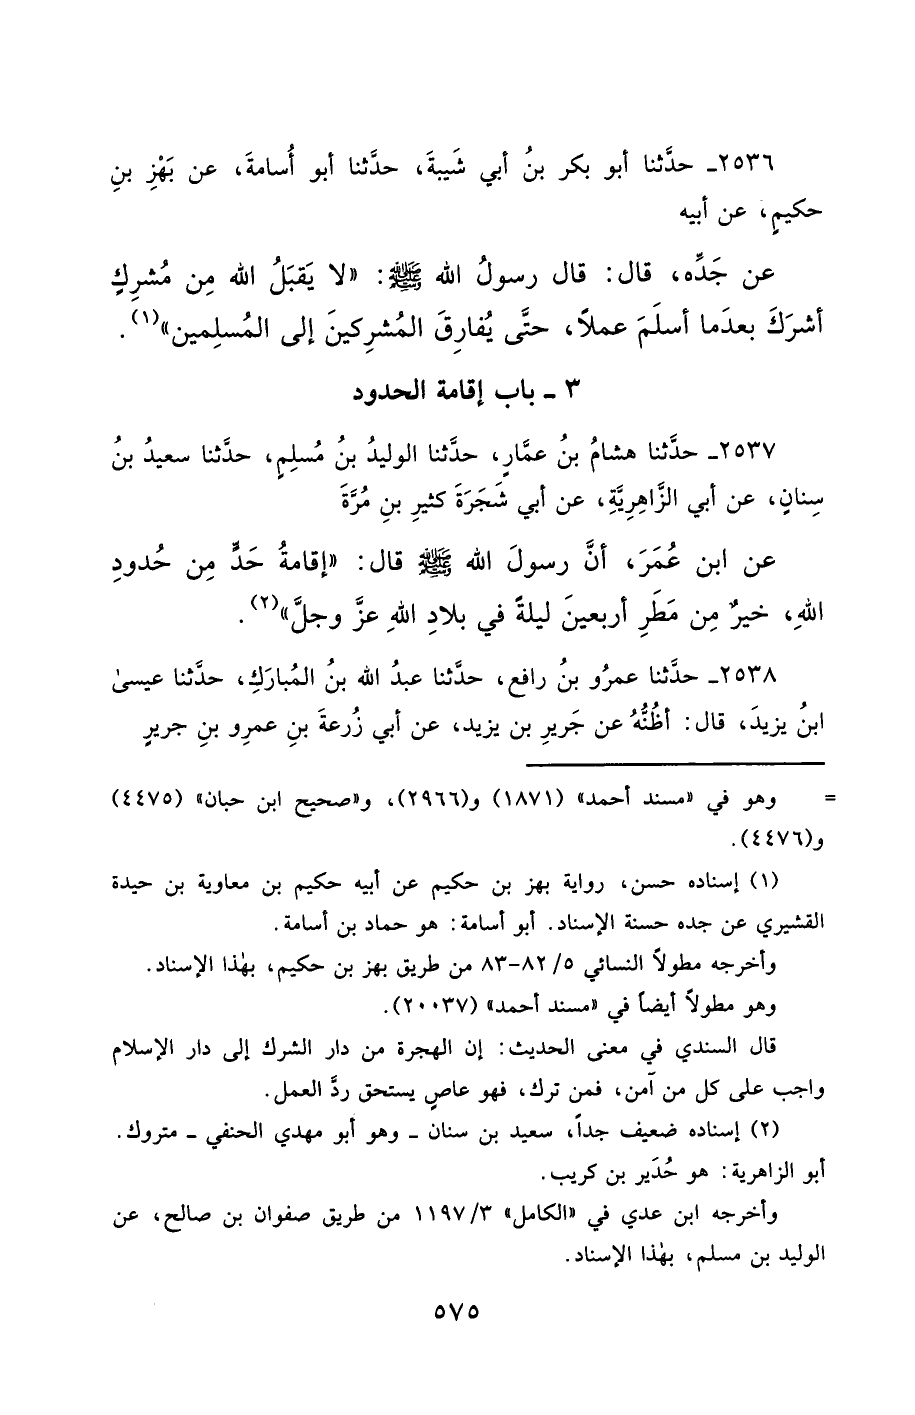 ٢٥٣٦ـ حدَّثنا أبو بكر بنُ أبي شَيبةَ، حدَّثنا أبو أُسامةَ، عن بَهْزِ بنِ
حكيمٍ، عن أبيه
عن جَدِّه، قال: قال رسولُ الله ﷺ: «لا يَقبَلُ الله مِن مُشرِكٍ
أشرَكَ بعدَما أسلَمَ عملاً، حتَّى يُفارِقَ المُشرِكينَ إلى المُسلِمين»(١).
٣ ـ باب إقامة الحدود
٢٥٣٧ـ حدَّثنا هشامُ بنُ عمَّارٍ، حدَّثنا الوليدُ بنُ مُسلِمٍ، حدَّثنا سعيدُ بنُ
سِنانٍ، عن أبي الزَّاهِريَّةِ، عن أبي شَجَرَةَ كثيرِ بنِ مُرَّةَ
عن ابن عُمَرَ، أنَّ رسولَ الله ﷺ قال: «إقامةُ حَدٍّ مِن حُدودِ
اللهِ، خيرٌ مِن مَطَرِ أربعينَ ليلةً في بلادِ اللهِ عزَّ وجلَّ»(٢).
٢٥٣٨ـ حدَّثنا عمرُو بنُ رافع، حدَّثنا عبدُ الله بنُ المُبارَكِ، حدَّثنا عيسىٰ
ابنُ يزيدَ، قال: أظُنُّهُ عن جَريرِ بن يزيد، عن أبي زُرعةَ بنِ عمرِو بنِ جريرٍ
= وهو في «مسند أحمد» (١٨٧١) و(٢٩٦٦)، و«صحيح ابن حبان» (٤٤٧٥)
و(٤٤٧٦).
(١) إسناده حسن، رواية بهز بن حكيم عن أبيه حكيم بن معاوية بن حيدة
القشيري عن جده حسنة الإسناد. أبو أسامة: هو حماد بن أسامة.
وأخرجه مطولاً النسائي ٥/ ٨٢-٨٣ من طريق بهز بن حكيم، بهٰذا الإسناد.
وهو مطولاً أيضاً في «مسند أحمد» (٢٠٠٣٧).
قال السندي في معنى الحديث: إن الهجرة من دار الشرك إلى دار الإسلام
واجب على كل من آمن، فمن ترك، فهو عاصٍ يستحق ردَّ العمل.
(٢) إسناده ضعيف جداً، سعيد بن سنان ـ وهو أبو مهدي الحنفي ـ متروك.
أبو الزاهرية: هو حُدَير بن كريب.
وأخرجه ابن عدي في «الكامل» ٣/ ١١٩٧ من طريق صفوان بن صالح، عن
الوليد بن مسلم، بهٰذا الإسناد.
٥٧٥